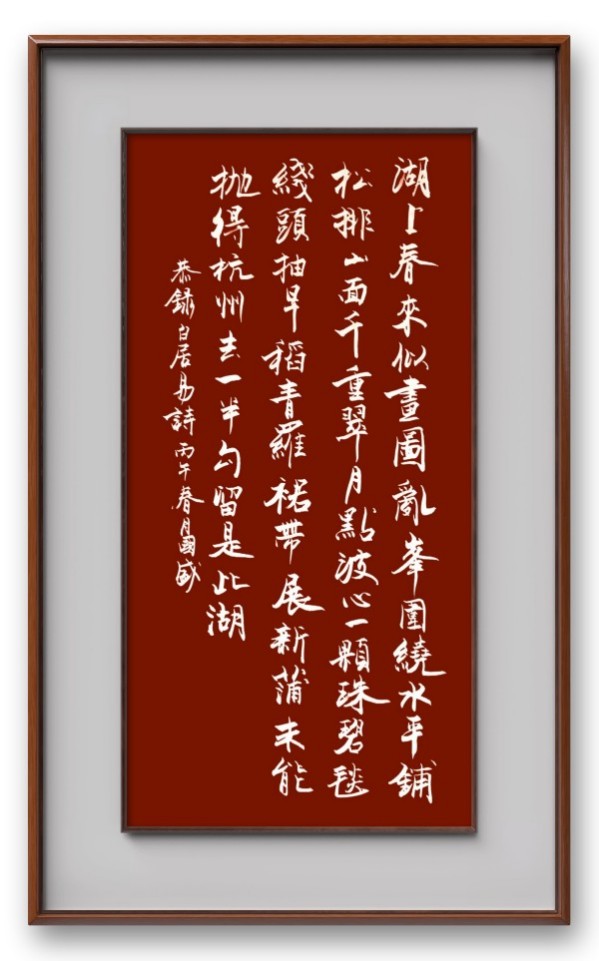 湖上春來似畫圖亂峯圍繞水平鋪
松排山面千重翠月點波心一顆珠碧毯
綫頭抽早稻青羅裙帶展新蒲未能
抛得杭州去一半勾留是此湖
恭録白居易詩丙午春月國盛